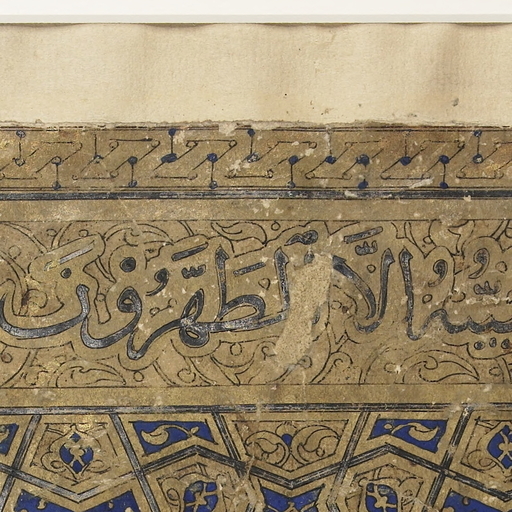 يمسه الا المطهرون